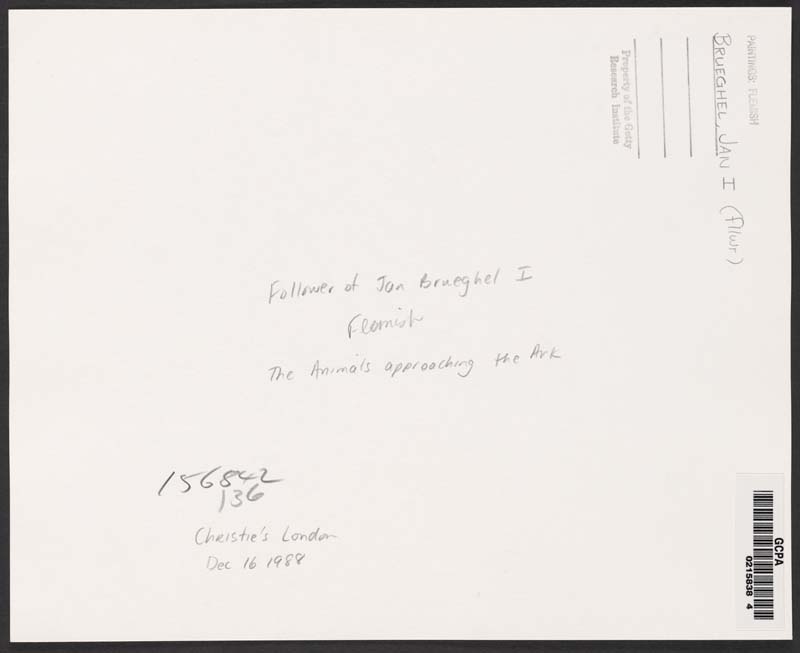 PAINTINGS: FLEMISH
BRUEGHEL, JAN I (fllwr)
Property of the Getty
Research Institute
Follower of Jan Brueghel I
Flemish
The Animals approaching the Ark
156842
136
Christie's London
Dec 16 1988
GCPA
0215838 4